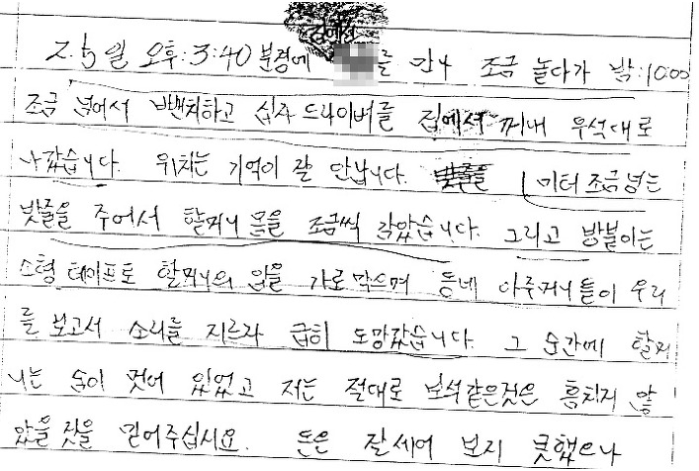 집에서
2.5일 오후:3:40분경에 를 만나 조금 놀다가 밤:10:00
조금 넘어서 뺀치하고 십자드라이버를 집에서 꺼내 우석대로
나갔습니다. 위치는 기억이 잘 안납니다. 1미터 조금넘는
빛줄을 주어서 할머니 몸을 조금씩 감았습니다. 그리고 방불이는
소형 테이프로 할머니의 입을 가로막으며 동네 아주머니들이 우리
를 보고서 소리를 지르자 급히 도망갔습니다. 그 순간에 할머
니는 숨이 멋어 있었고 저는 절대로 보석같은것은 훔치지 않
았을 것을 믿어주십시요. 돈은 잘세어 보지 못했으나